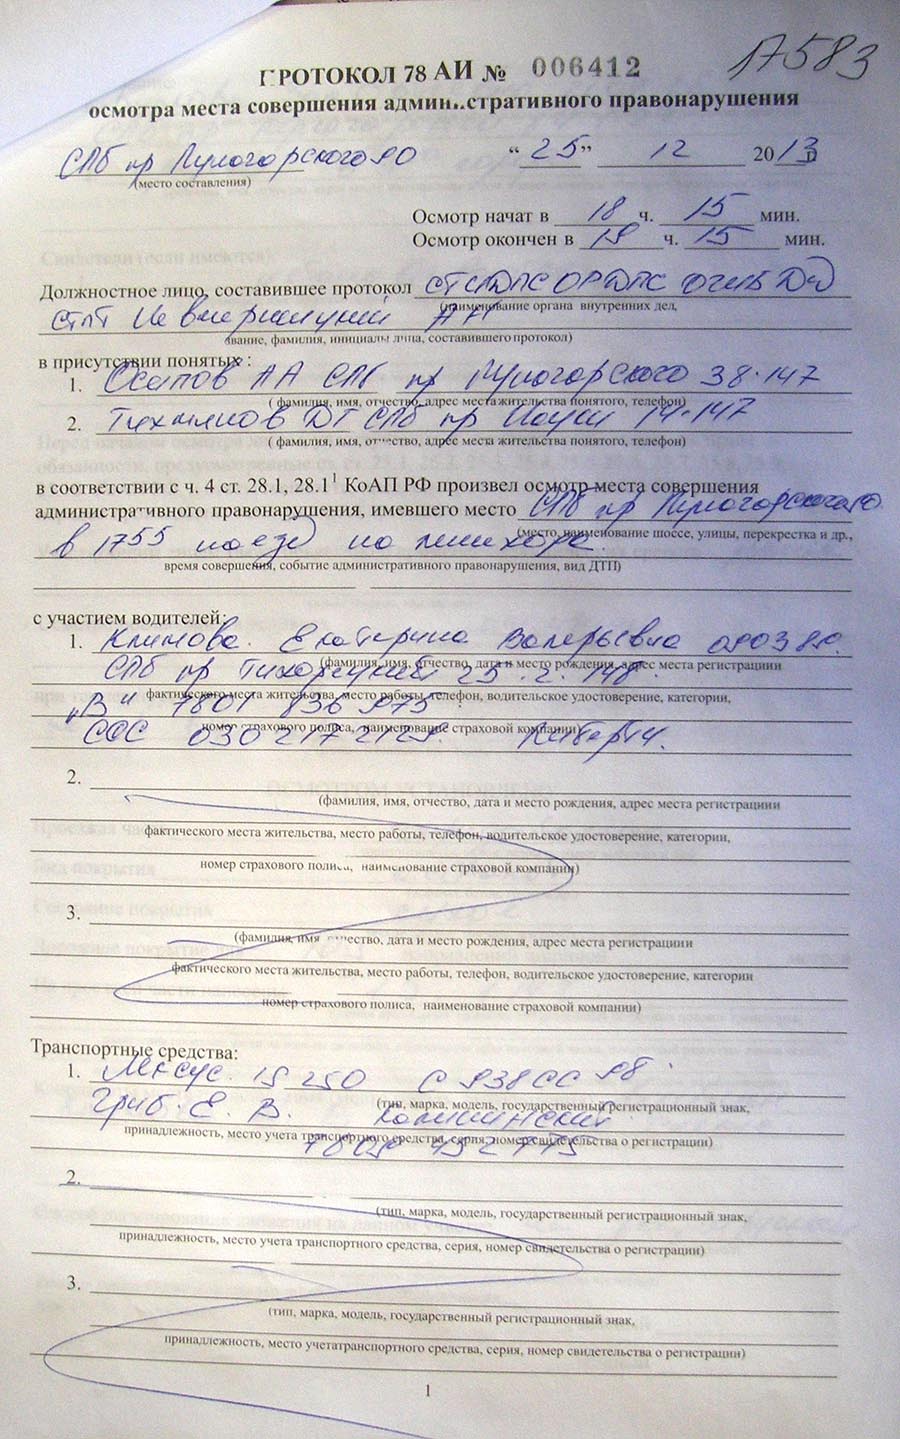 17583
ПРОТОКОЛ 78 АИ № 006412
осмотра места совершения административного правонарушения
СПб пр Лужогорского 90 “ 25 ” 12 2013 г
(место составления)
Осмотр начат в 18 ч. 15 мин.
Осмотр окончен в 19 ч. 15 мин.
Должностное лицо, составившее протокол
(наименование органа внутренних дел,
звание, фамилия, инициалы лица, составившего протокол)
в присутствии понятых :
1. Осипов АА СПб пр 38-147
( фамилия, имя, отчество, адрес места жительства понятого, телефон)
2. ДГ СПб пр Науки 14-147
( фамилия, имя, отчество, адрес места жительства понятого, телефон)
в соответствии с ч. 4 ст. 28.1, 28.1¹ КоАП РФ произвел осмотр места совершения
административного правонарушения, имевшего место СПб пр
(место, наименование шоссе, улицы, перекрестка и др.,
в 1755 наезд на пешехода.
время совершения, событие административного правонарушения, вид ДТП)
с участием водителей:
1. Климова Екатерина Валерьевна 090389.
(фамилия, имя, отчество, дата и место рождения, адрес места регистрациии
СПб пр Тихорецкий 25. 2. 148.
фактического места жительства, место работы, телефон, водительское удостоверение, категории,
„В“ 7801 836 9075
номер страхового полиса, наименование страховой компании)
ССС
2.
(фамилия, имя, отчество, дата и место рождения, адрес места регистрациии
фактического места жительства, место работы, телефон, водительское удостоверение, категории,
номер страхового полиса, наименование страховой компании)
3.
(фамилия, имя отчество, дата и место рождения, адрес места регистрациии
фактического места жительства, место работы, телефон, водительское удостоверение, категории
номер страхового полиса, наименование страховой компании)
Транспортные средства:
1. Лексус. IS 250 С 938 СС 98.
(тип, марка, модель, государственный регистрационный знак,
Гриб. Е. В. Калининский
принадлежность, место учета транспортного средства, серия, номер свидетельства о регистрации)
2.
(тип, марка, модель, государственный регистрационный знак,
принадлежность, место учета транспортного средства, серия, номер свидетельства о регистрации)
3.
(тип, марка, модель, государственный регистрационный знак,
принадлежность, место учетатранспортного средства, серия, номер свидетельства о регистрации)
1